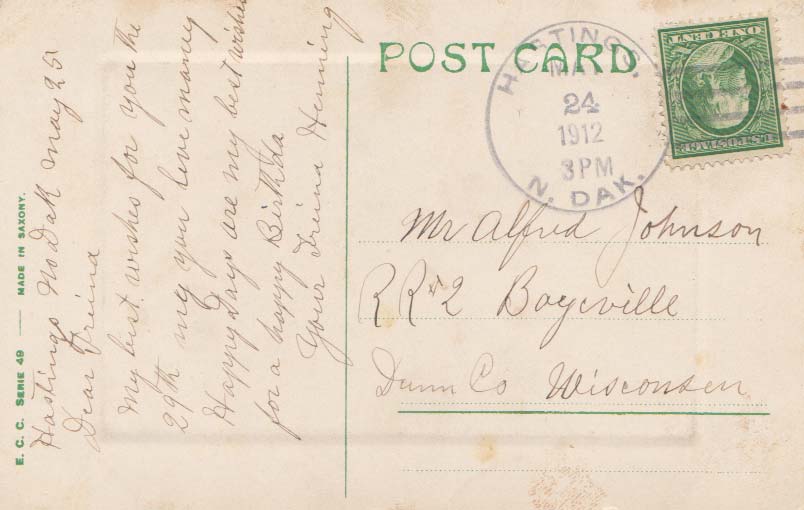 E. C. C. SERIE 49 MADE IN SAXONY.
Hastings No Dak May 25
Dear Freind
My best wishes for you the
29th my you leve maney
Happy Days are my best wishes
for a happy Birthda
Your Freind Henning
POST CARD
HASTINGS,
MAY
24
1912
3 PM
N. DAK.
U.S. POSTAGE
ONE CENT
Mr Alfred Johnson
RR#2 Boyeville
Dunn Co Wisconsen